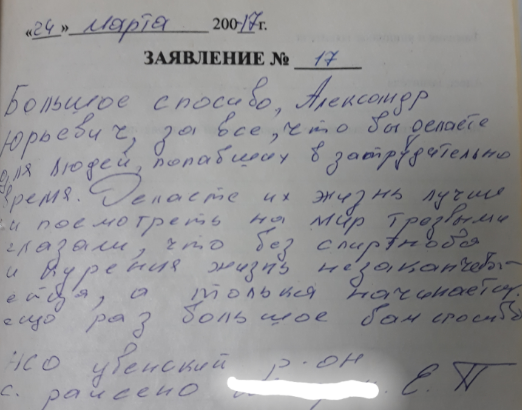 «24» марта 200 17 г.
ЗАЯВЛЕНИЕ № 17
Большое спосибо, Александр
Юрьевич, за все, что вы делаете
для людей, попавших в затрудательно
время. Делаете их жизнь лучше
и посмотреть на мир трезвыми
глазами, что без спиртнова
и курения жизнь незаканчева-
ется, а толька начинается,
ещо раз большое вам спосибо
НСО р-он
с. Е. П